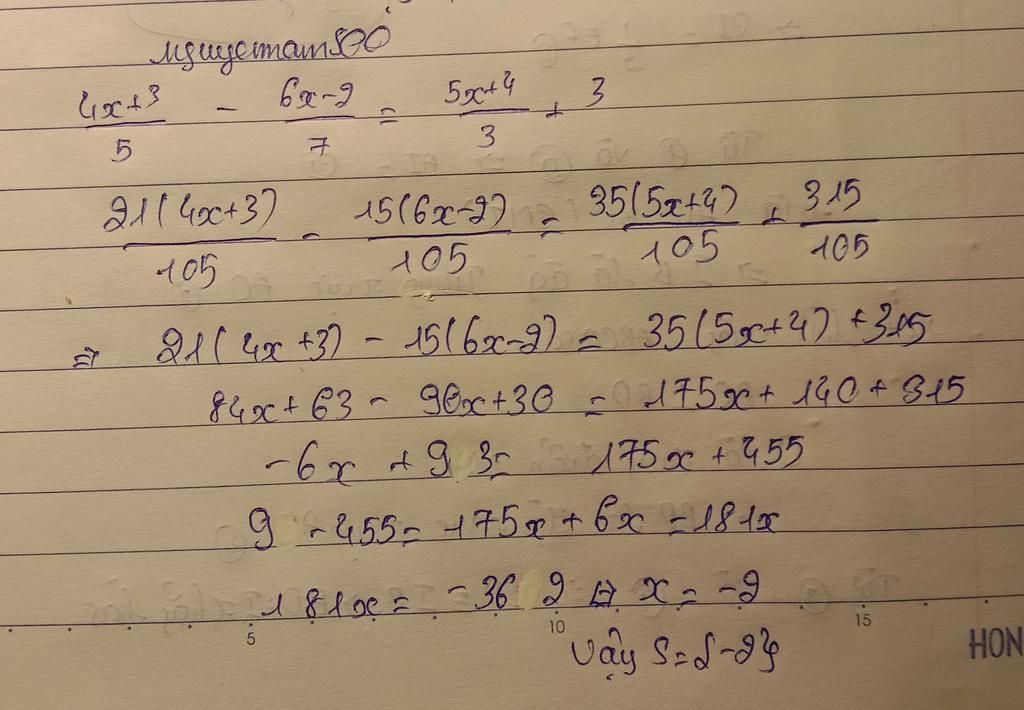 nguyentam500
4x+3/5 - 6x-2/7 = 5x+4/3 + 3
21(4x+3)/105 - 15(6x-2)/105 = 35(5x+4)/105 + 315/105
⇒ 21(4x+3) - 15(6x-2) = 35(5x+4) + 315
84x + 63 - 90x + 30 = 175x + 140 + 315
-6x + 9 3 = 175x + 455
9 - 455 = 175x + 6x = 181x
181x = -36 2 ⇔ x = -2
Vậy S = {-2}
5 10 15
HON